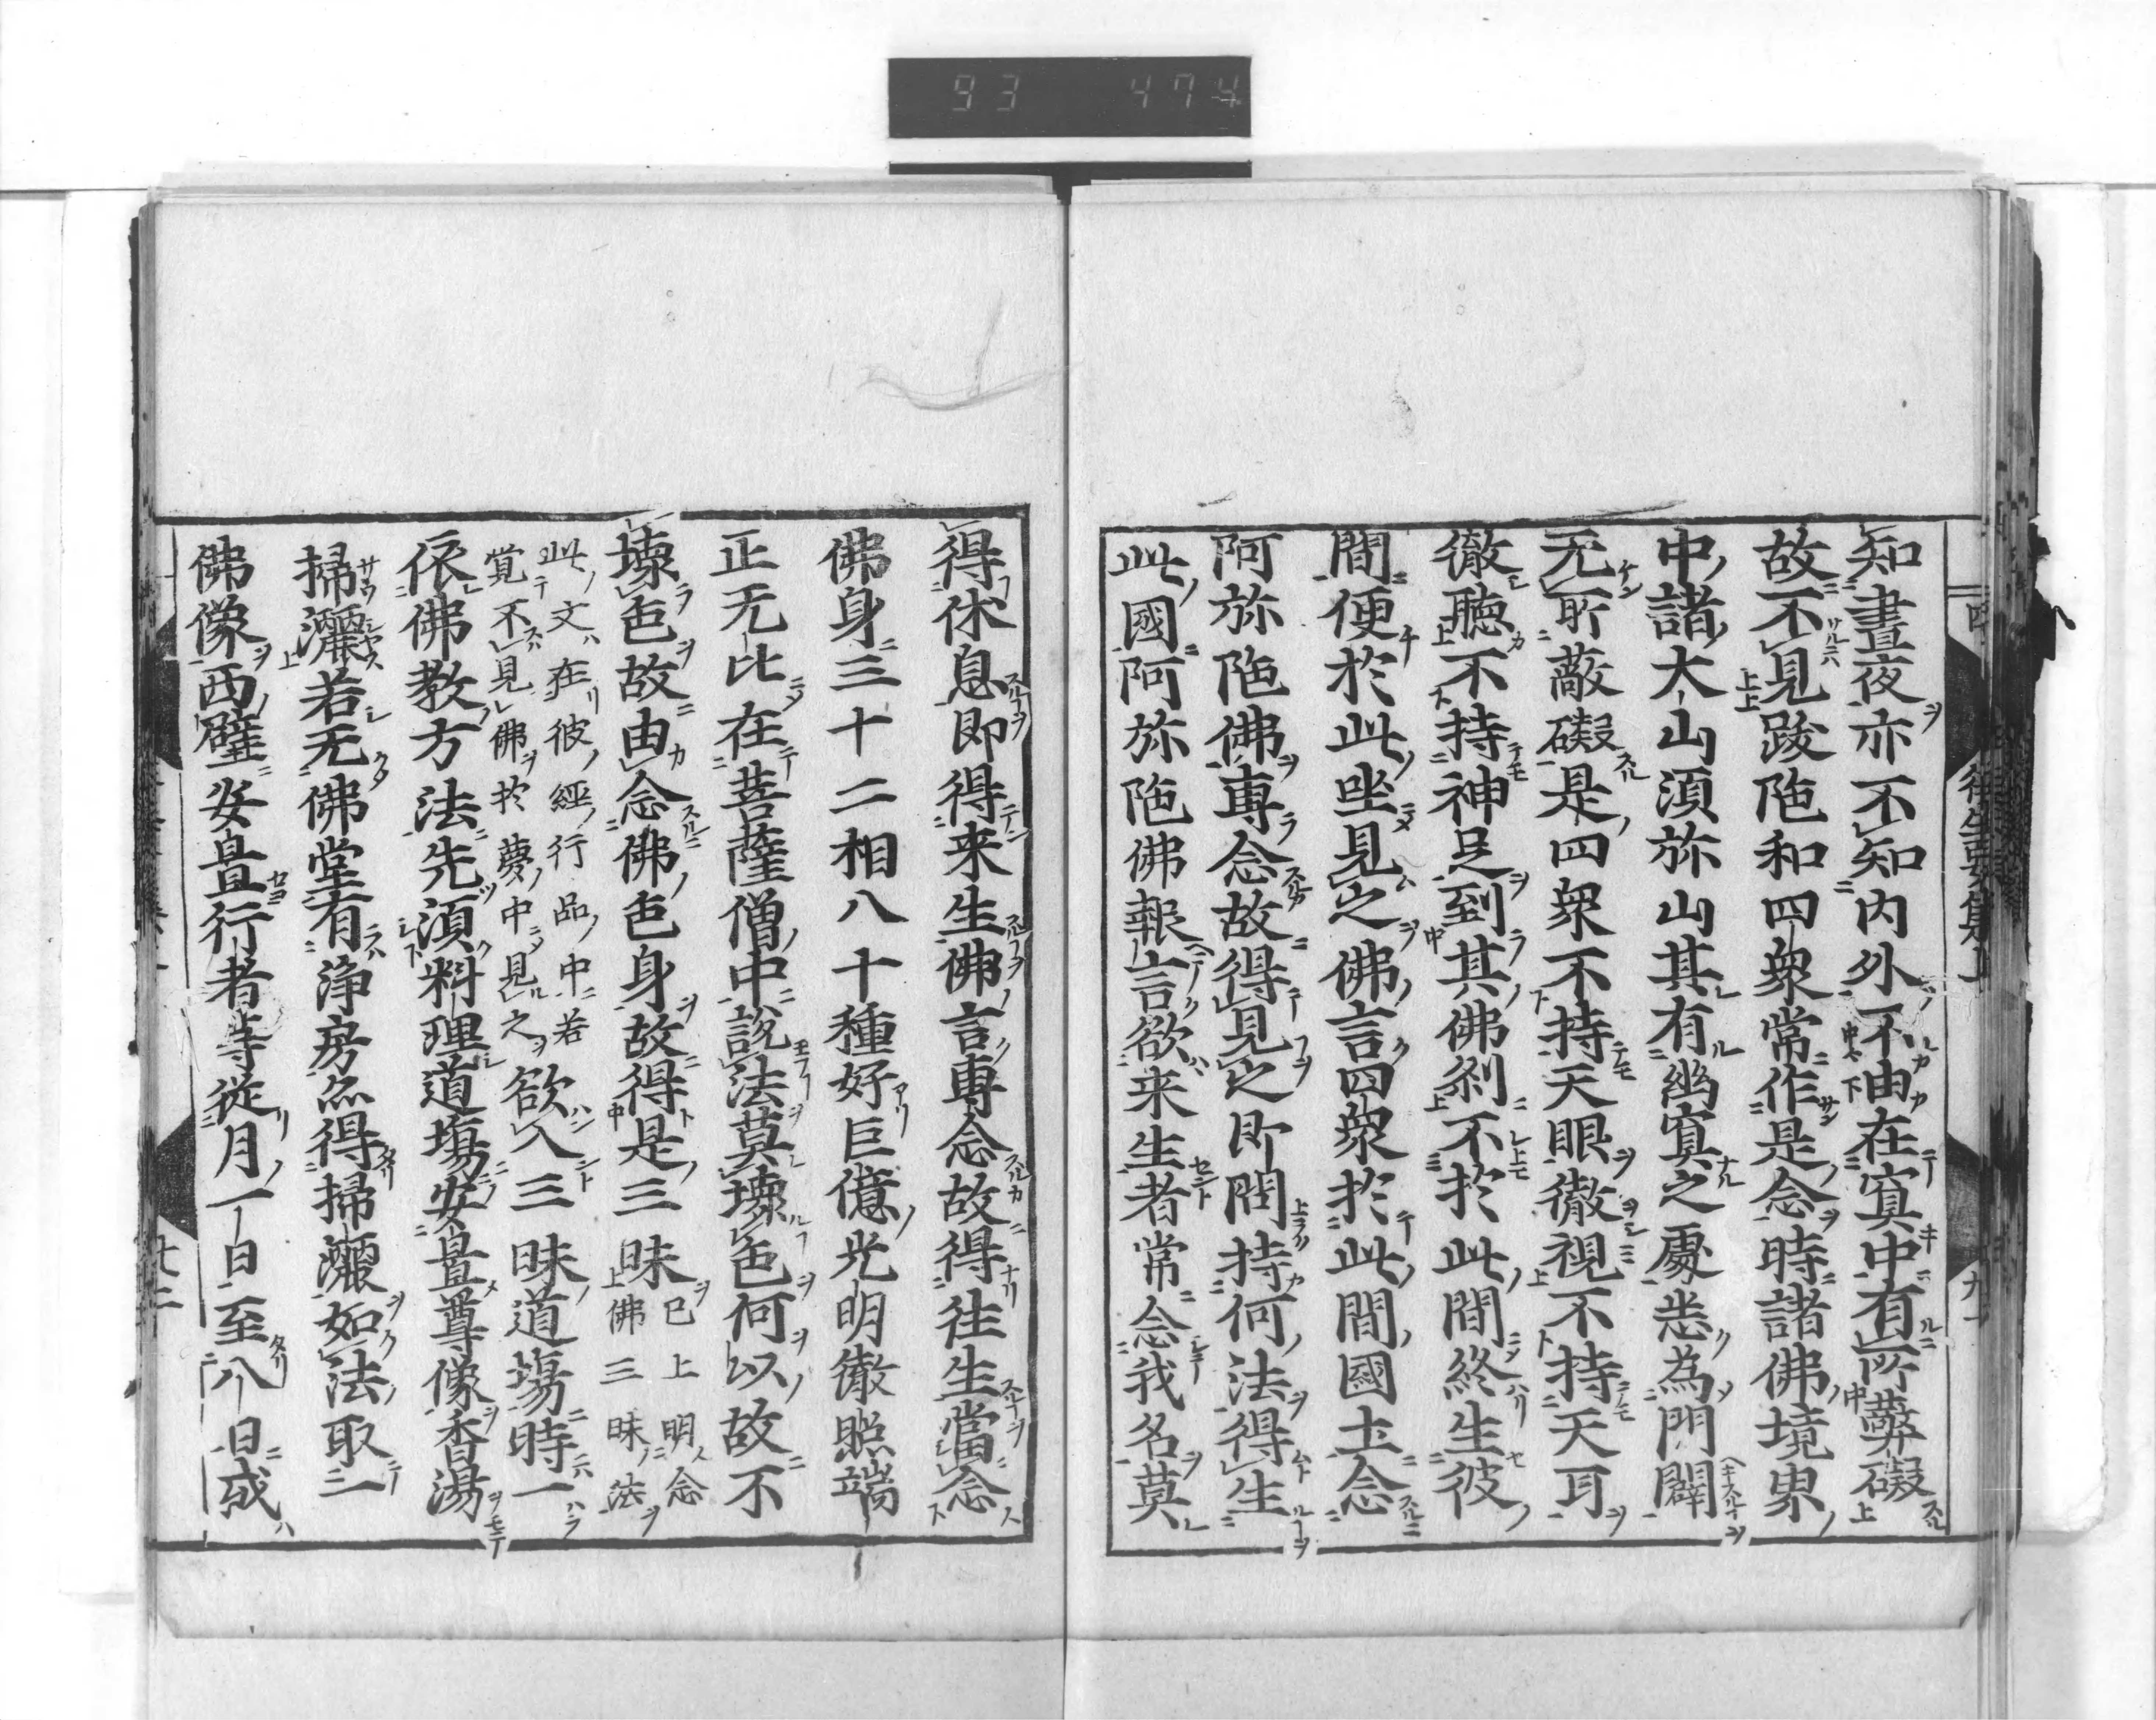 93 474
知晝夜亦不知内外不由在㝠中有所蔽礙
故不見跋陁和四衆常作是念時諸佛境界
中諸大山湏弥山其有幽㝠之處悉為門闢
无所蔽礙是四衆不持天眼徹視不持天耳
徹聽不持神足到其佛刹不於此間終生彼
間便於此坐見之佛言四衆於此間國土念
阿弥陁佛専念故得見之即問持何法得生
此國阿弥陁佛報言欲来生者常念我名莫
得休息即得来生佛言専念故得徃生當念
佛身三十二相八十種好巨億光明徹照端
正无比在菩薩僧中說法莫壊色何以故不
壊色故由念佛色身故得是三昧已上明念
佛三昧法
此文在彼經行品中若
覚不見佛於夢中見之欲入三昧道塲時一
依佛教方法先湏料理道塲安置尊像香湯
掃灑若无佛堂有淨房亦得掃灑如法取一
佛像西壁安置行者等從月一日至八日或